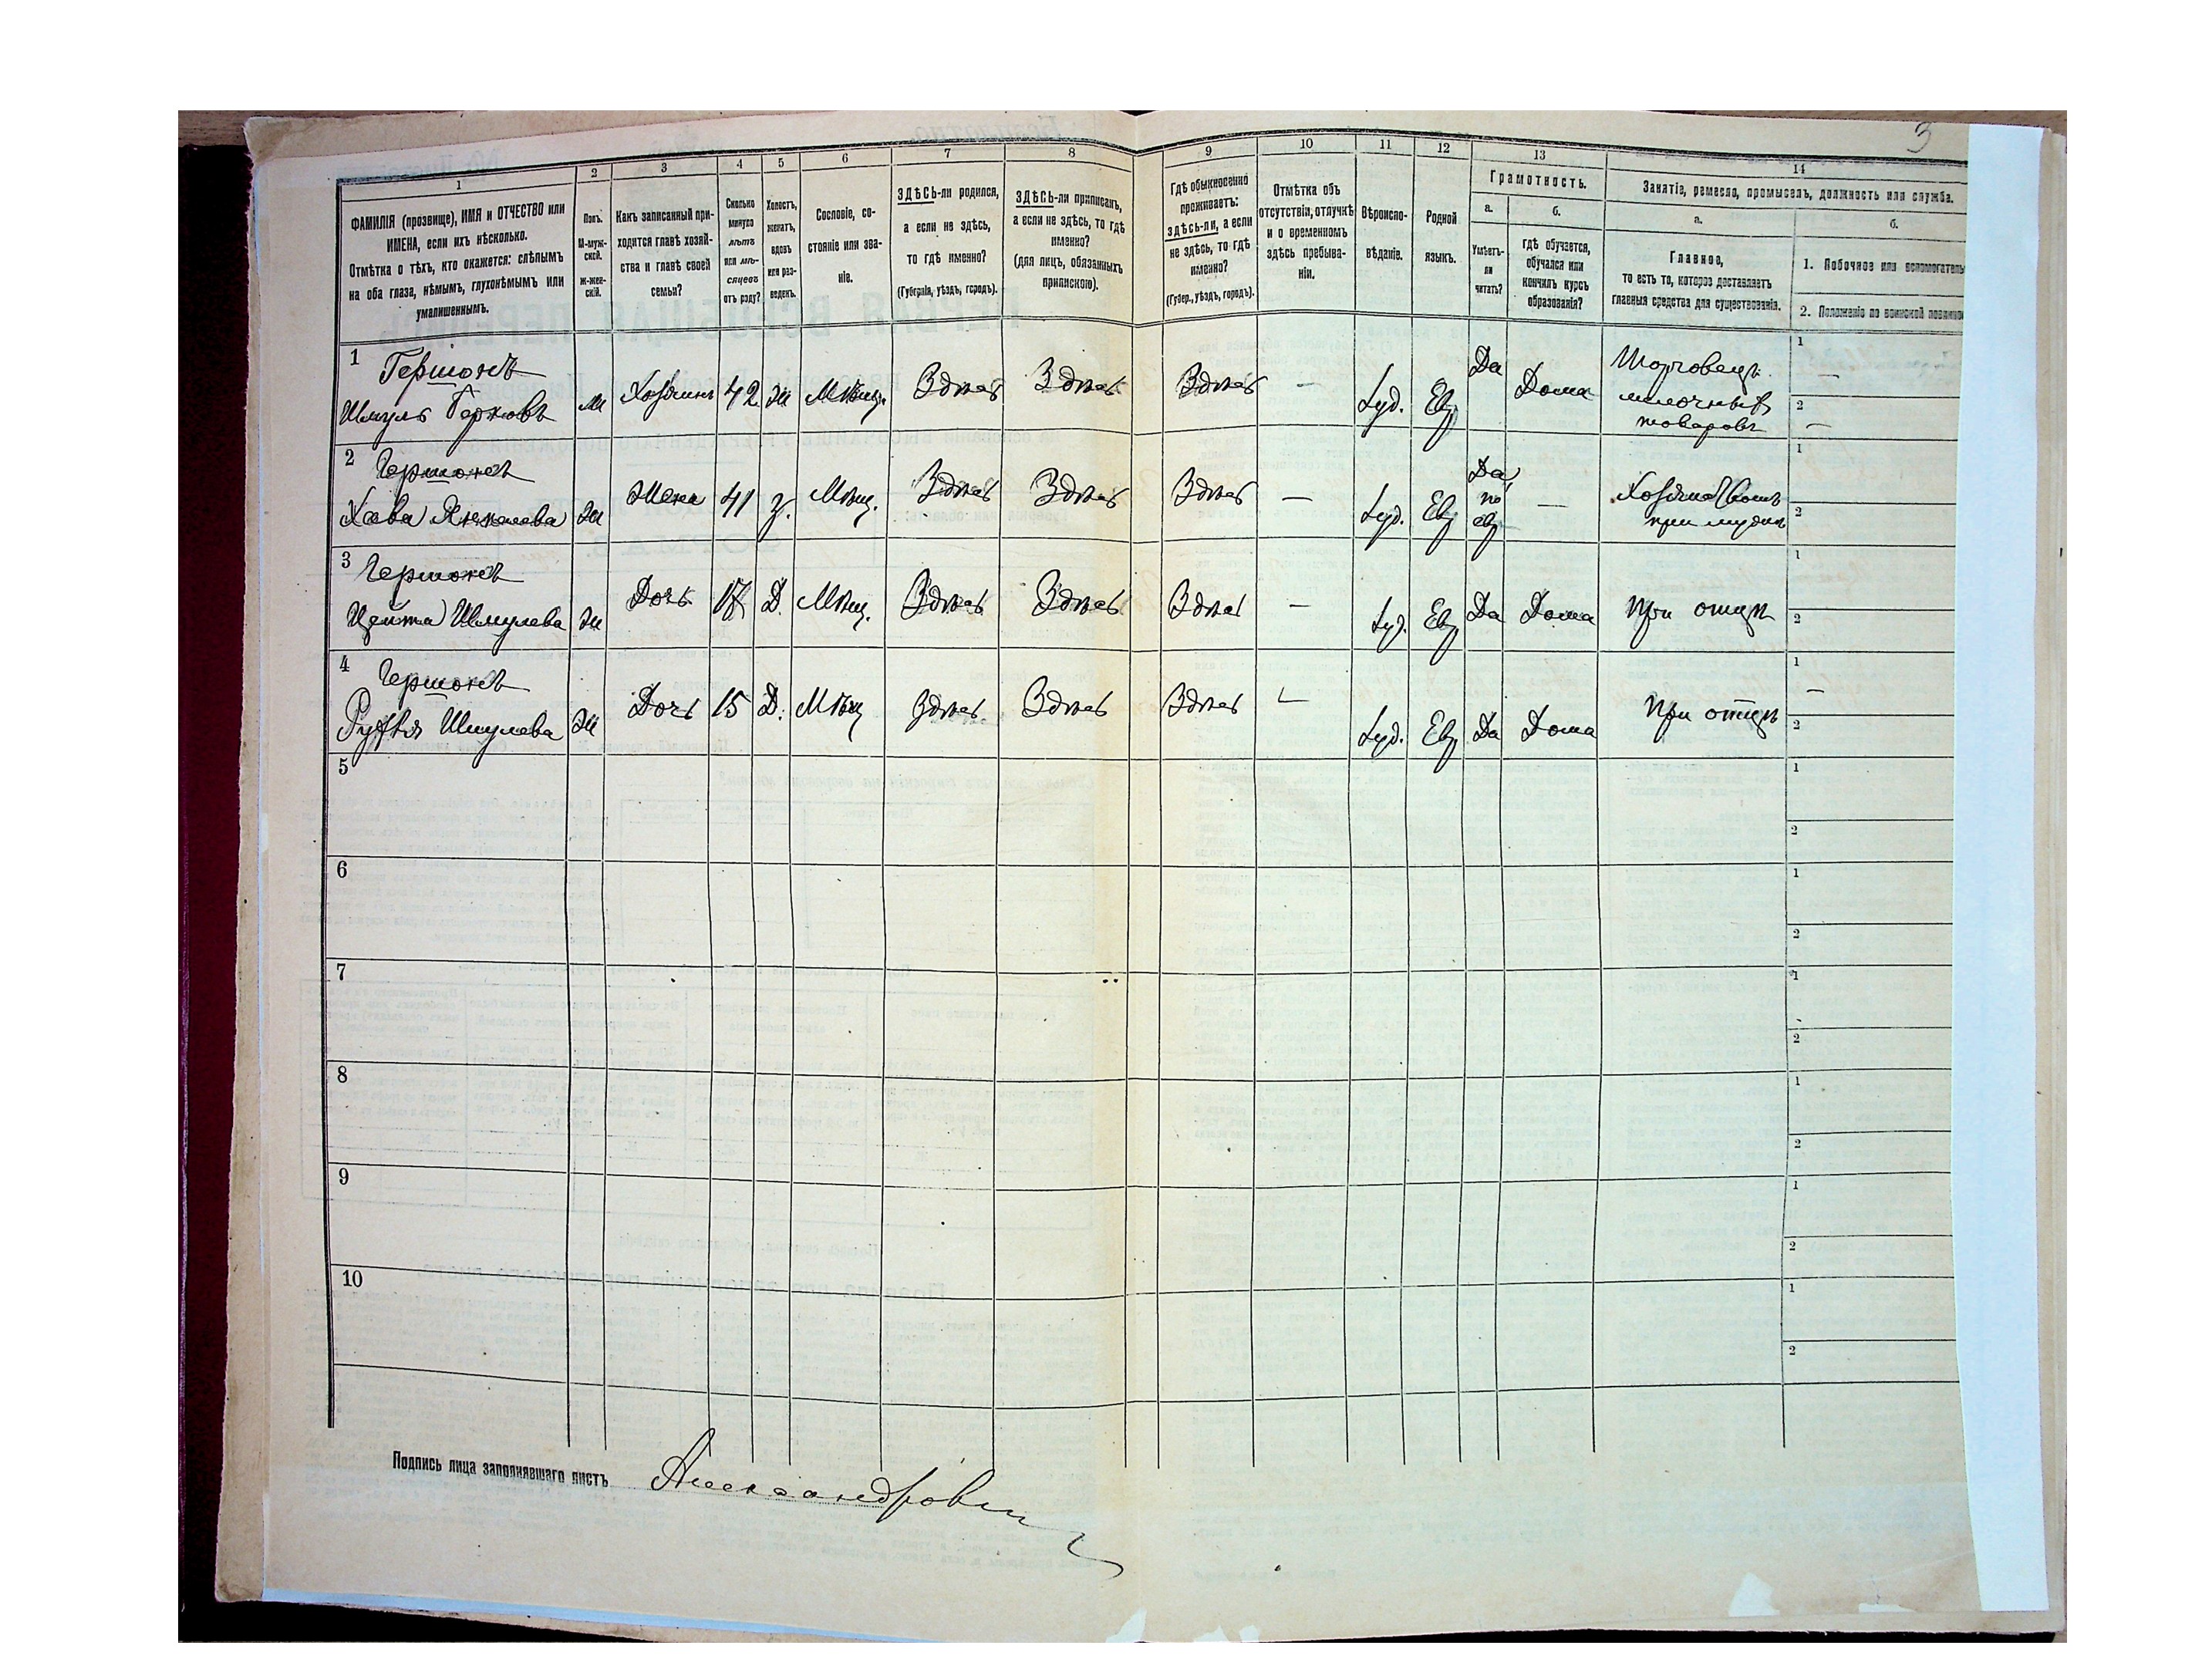 3
1 2 3 4 5 6 7 8 9 10 11 12 13 14
ФАМИЛІЯ (прозвище), ИМЯ и ОТЧЕСТВО или
ИМЕНА, если ихъ нѣсколько.
Отмѣтка о тѣхъ, кто окажется: слѣпымъ
на оба глаза, нѣмымъ, глухонѣмымъ или
умалишеннымъ.
Полъ.
М-муж-
ской.
Ж-жен-
скій.
Какъ записанный при-
ходится главѣ хозяй-
ства и главѣ своей
семьи?
Сколько
минуло
лѣтъ
или мѣ-
сяцевъ
отъ роду?
Холостъ,
женатъ,
вдовъ
или раз-
веденъ.
Сословіе, со-
стояніе или зва-
ніе.
ЗДѢСЬ-ли родился,
а если не здѣсь,
то гдѣ именно?
(Губернія, уѣздъ, городъ).
ЗДѢСЬ-ли приписанъ,
а если не здѣсь, то гдѣ
именно?
(для лицъ, обязанныхъ
припискою).
Гдѣ обыкновенно
проживаетъ:
здѣсь-ли, а если
не здѣсь, то гдѣ
именно?
(Губер., уѣздъ, городъ).
Отмѣтка объ
отсутствіи, отлучкѣ
и о временномъ
здѣсь пребыва-
ніи.
Вѣроиспо-
вѣданіе.
Родной
языкъ.
Грамотность.
а. б.
Умѣетъ-
ли
читать?
гдѣ обучается,
обучался или
кончилъ курсъ
образованія?
Занятіе, ремесло, промыселъ, должность или служба.
а. б.
Главное,
то есть то, которое доставляетъ
главныя средства для существованія.
1. Побочное или вспомогатель
2. Положеніе по воинской повинно
1 Гершонъ
Шмуль Герховъ М Хозяинъ 42 Ж Мѣщ. Здѣсь Здѣсь Здѣсь — Іуд. Евр Да Дома Торговецъ
мелочныхъ
товаровъ
1 —
2 —
2 Гершонъ
Хава Янкелева Ж Жена 41 З. Мѣщ. Здѣсь Здѣсь Здѣсь — Іуд. Евр Да,
по
евр
— Хозяйствомъ
при мужѣ
1
2
3 Гершонъ
Цейта Шмулева Ж Дочь 17 Д. Мѣщ. Здѣсь Здѣсь Здѣсь — Іуд. Евр Да Дома При отцѣ
1
2
4 Гершонъ
Шмулева Ж Дочь 15 Д. Мѣщ Здѣсь Здѣсь Здѣсь — Іуд. Евр Да Дома При отцѣ
1 —
2
5 1
2
6 1
2
7 1
2
8 1
2
9 1
2
10 1
2
Подпись лица заполнявшаго листъ